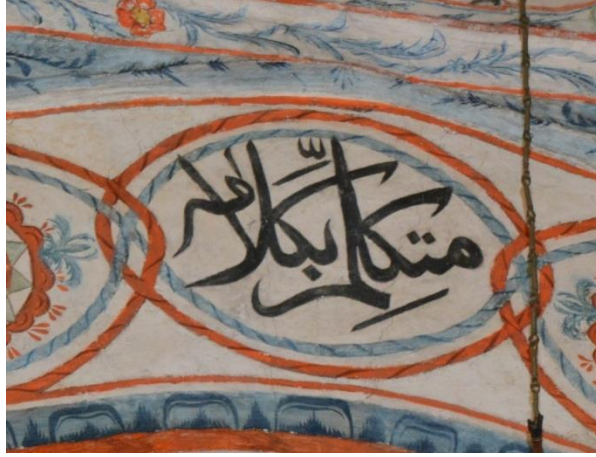 متكلّم بكلامه